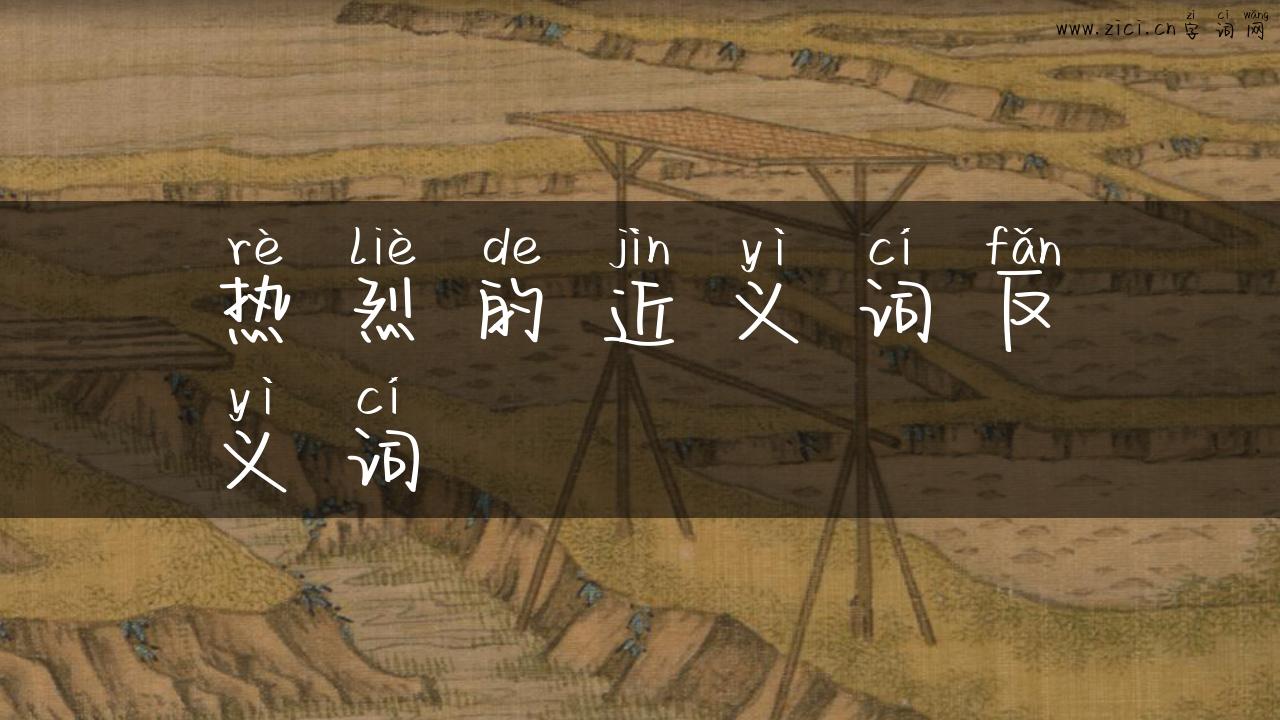 zì cí wǎng
www.zici.cn 字词网
rè liè de jìn yì cí fǎn
热烈的近义词反
yì cí
义词